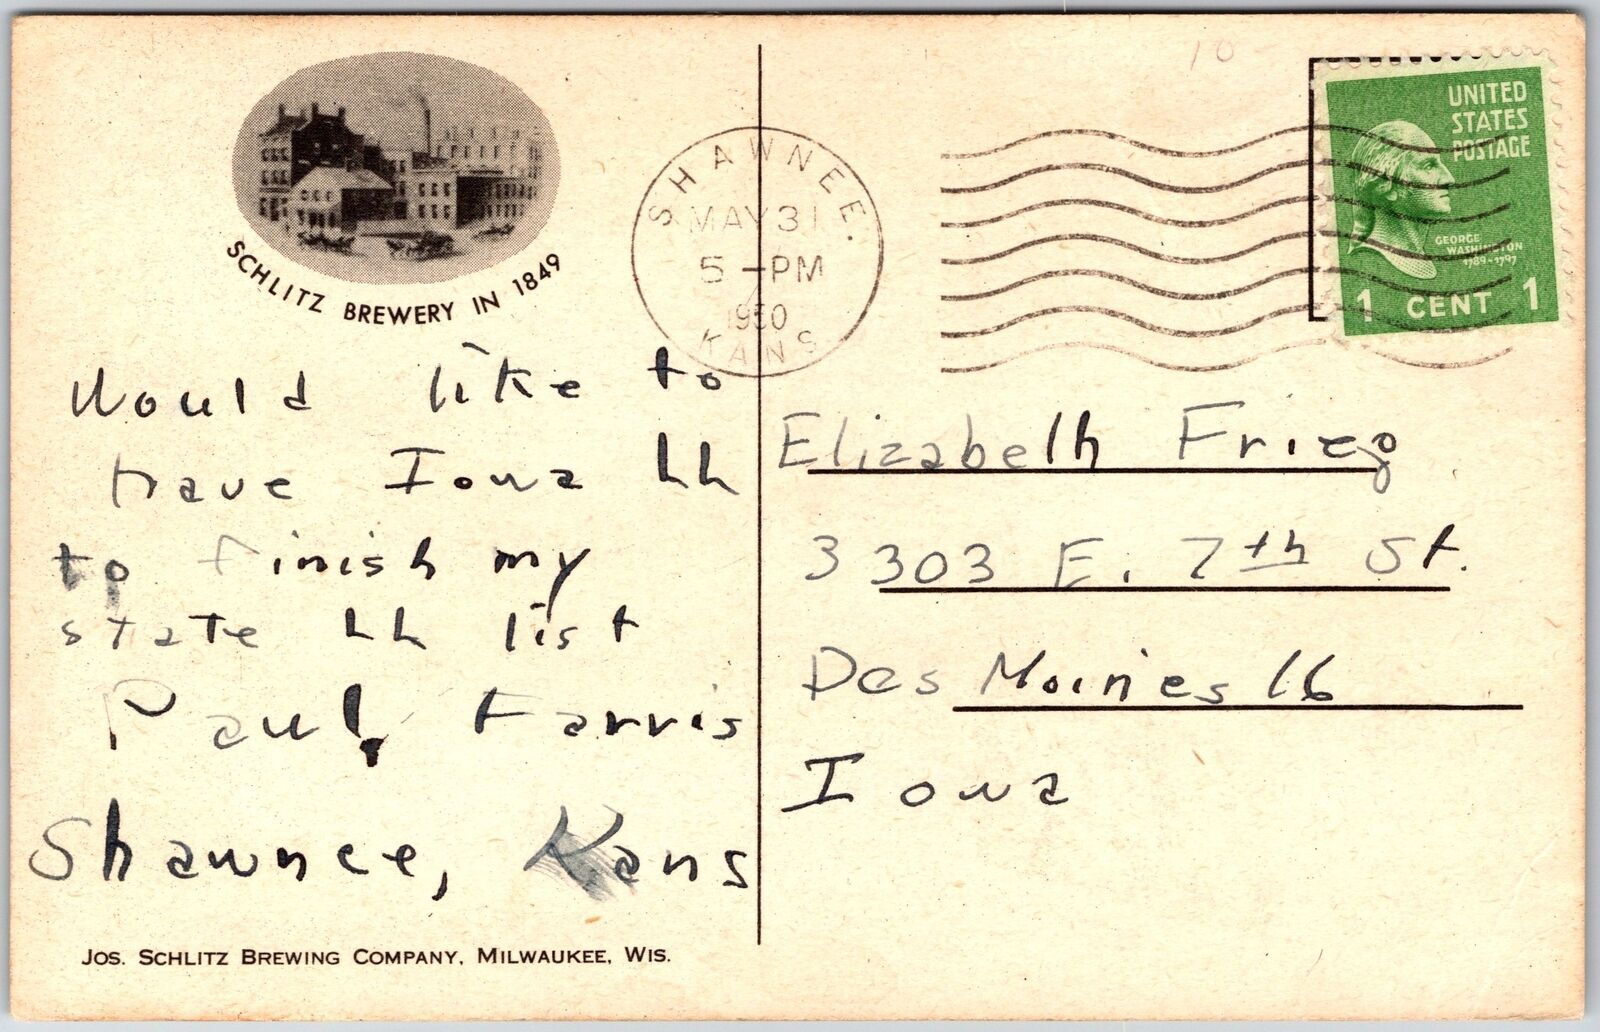 SCHLITZ BREWERY IN 1849
Would like to
have Iowa LL
to finish my
state LL list
Paul Farris
Shawnee, Kans
JOS. SCHLITZ BREWING COMPANY, MILWAUKEE, WIS.
SHAWNEE.
MAY 31
5 - PM
1950
KANS
10
UNITED
STATES
POSTAGE
GEORGE
WASHINGTON
1789-1797
1 CENT 1
Elizabeth Frieg
3303 E. 7th St.
Des Moines 16
Iowa